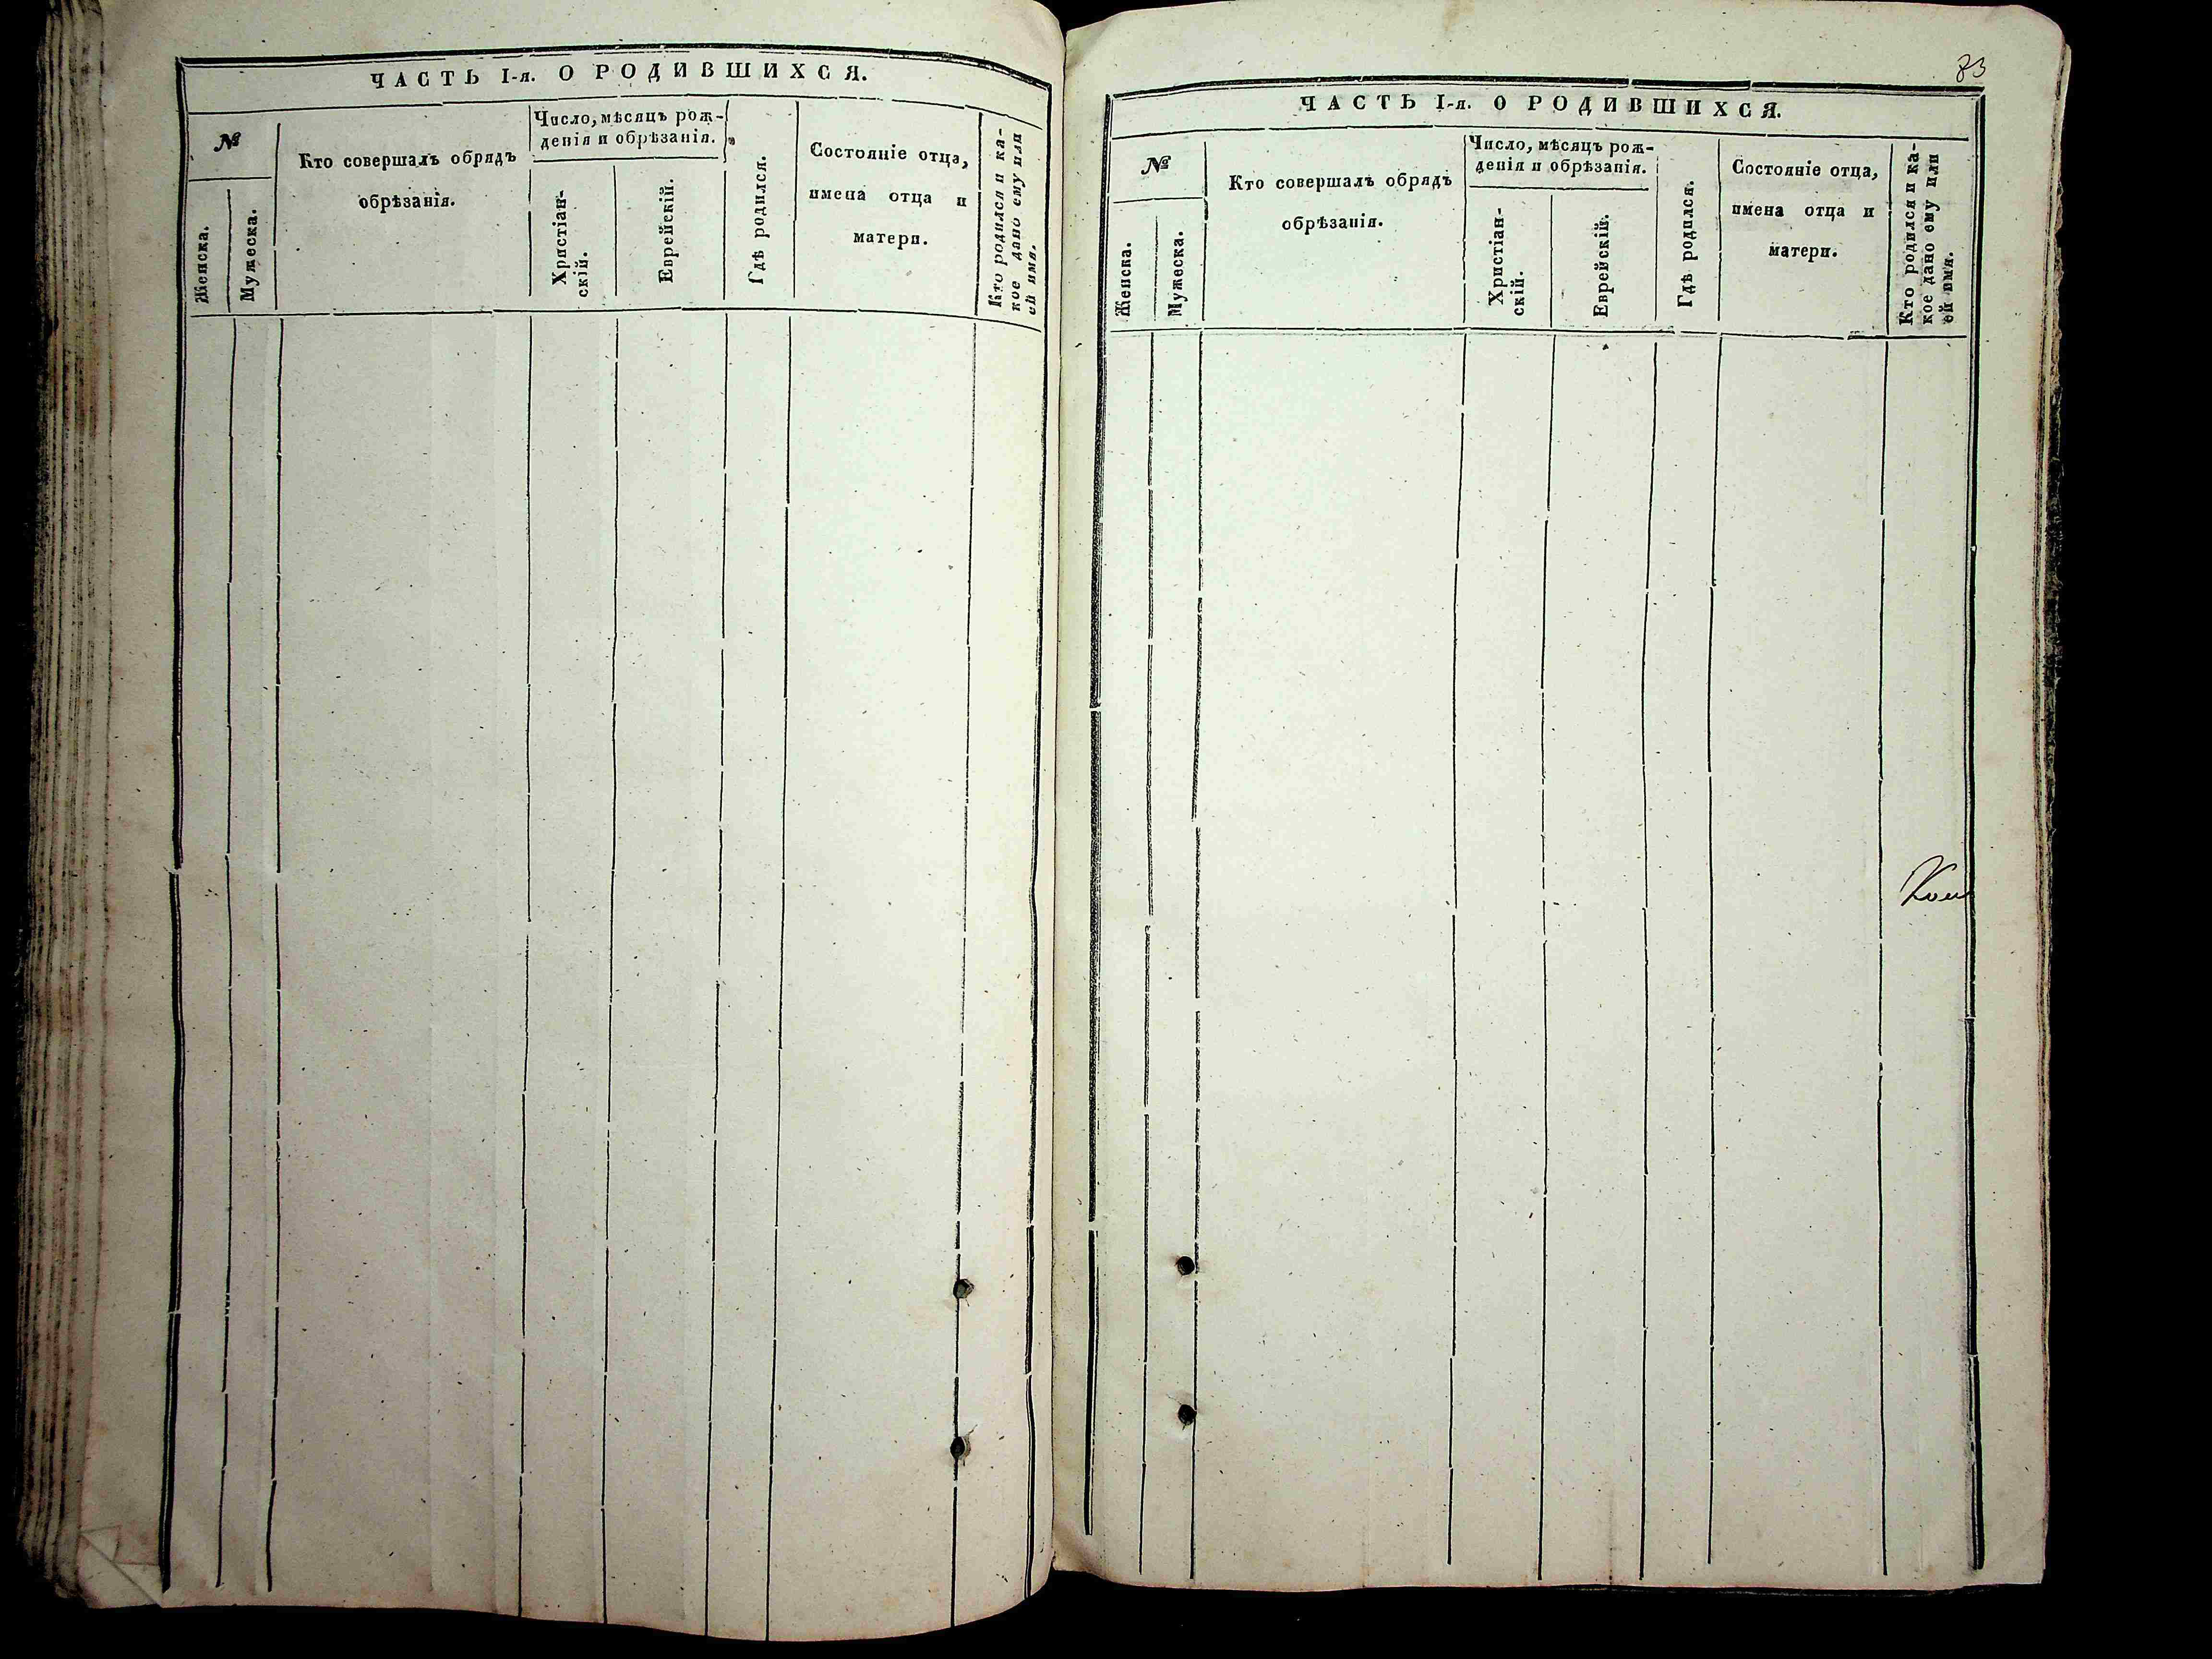 ЧАСТЬ I-я. О РОДИВШИХСЯ.
№
Женска.
Мужеска.
Кто совершалъ обрядъ
обрѣзанія.
Число, мѣсяцъ рож-
денія и обрѣзанія.
Христіан-
скій.
Еврейскій.
Гдѣ родился.
Состояніе отца,
имена отца и
матери.
Кто родился и ка-
кое дано ему или
ей имя.
83
ЧАСТЬ I-я. О РОДИВШИХСЯ.
№
Женска.
Мужеска.
Кто совершалъ обрядъ
обрѣзанія.
Число, мѣсяцъ рож-
денія и обрѣзанія.
Христіан-
скій.
Еврейскій.
Гдѣ родился.
Состояніе отца,
имена отца и
матери.
Кто родился и ка-
кое дано ему или
ей имя.